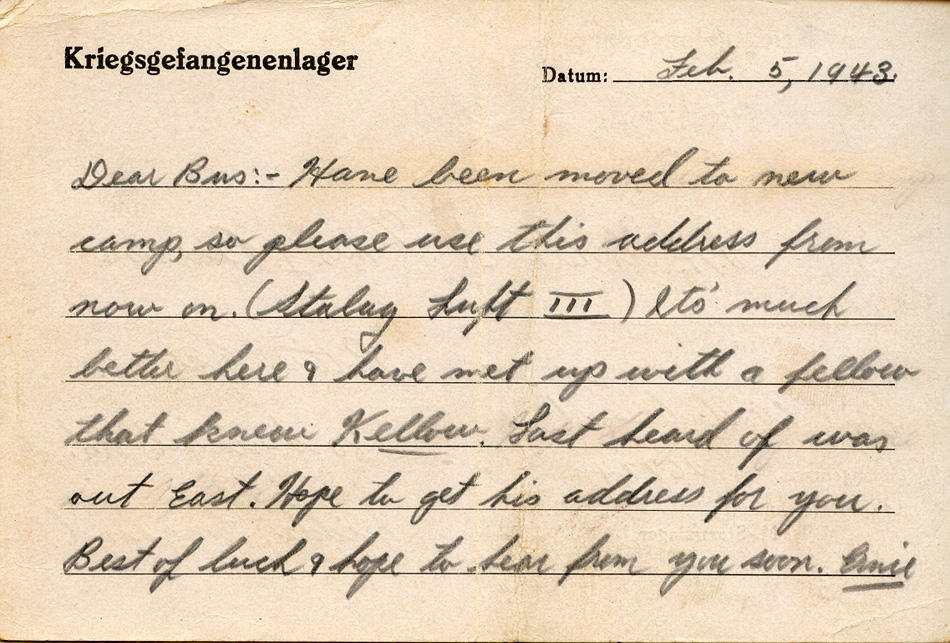 Kriegsgefangenenlager
Datum: Feb. 5, 1943.
Dear Bus:- Have been moved to new
camp, so please use this address from
now on. (Stalag Luft III) Its' much
better here & have met up with a fellow
that knew Kellow. Last heard of was
out East. Hope to get his address for you.
Best of luck & hope to hear from you soon.